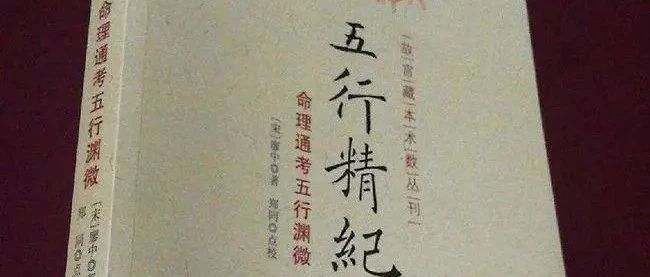 故宫藏本术数丛刊
五行精紀
命理通考五行渊微
[宋]廖中◎著 郑同◎点校
命理通考五行渊微
[宋]廖中◎
郑同◎点